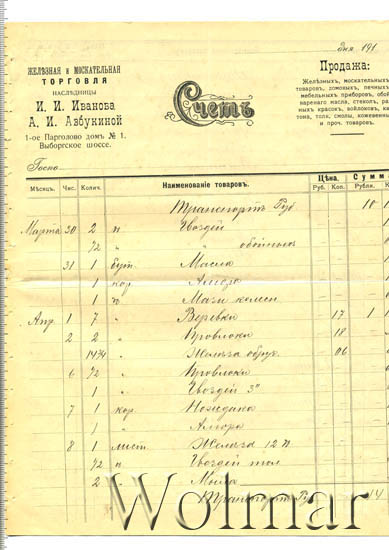 дня 191
ЖЕЛѢЗНАЯ и МОСКАТЕЛЬНАЯ
ТОРГОВЛЯ
НАСЛѢДНИЦЫ
И. И. Иванова
А. И. Азбукиной
1-ое Парголово домъ № 1.
Выборгское шоссе.
Счетъ
Продажа:
Желѣзныхъ, москательныхъ
товаровъ, домовыхъ, печныхъ
мебельныхъ приборовъ, обой
варенаго масла, стеколъ, раз
ныхъ красокъ, войлоковъ, ка
тона, толя, смолы, кожевенны
и проч. товаровъ.
Госпо
Мѣсяцъ. Чис. Колич. Наименованіе товаровъ. Цѣна. Сумма
Руб. Коп. Руб. К
Транспортъ Руб. 10
Марта 30 2 п Гвоздей
" обойныхъ
31 1 бут. Масла
1 кор.
1 Мази колесн
Апр. 1 7 " Веревки 17 1
2 2 " Проволоки 18
" Желѣза обруч. 06
6 " Проволоки
1 " Гвоздей 3"
7 1 кор.
1 "
8 1 лист. Желѣза 12
п. Гвоздей тол
2 " Мыла
Транспортъ Руб. 14
Wolmar